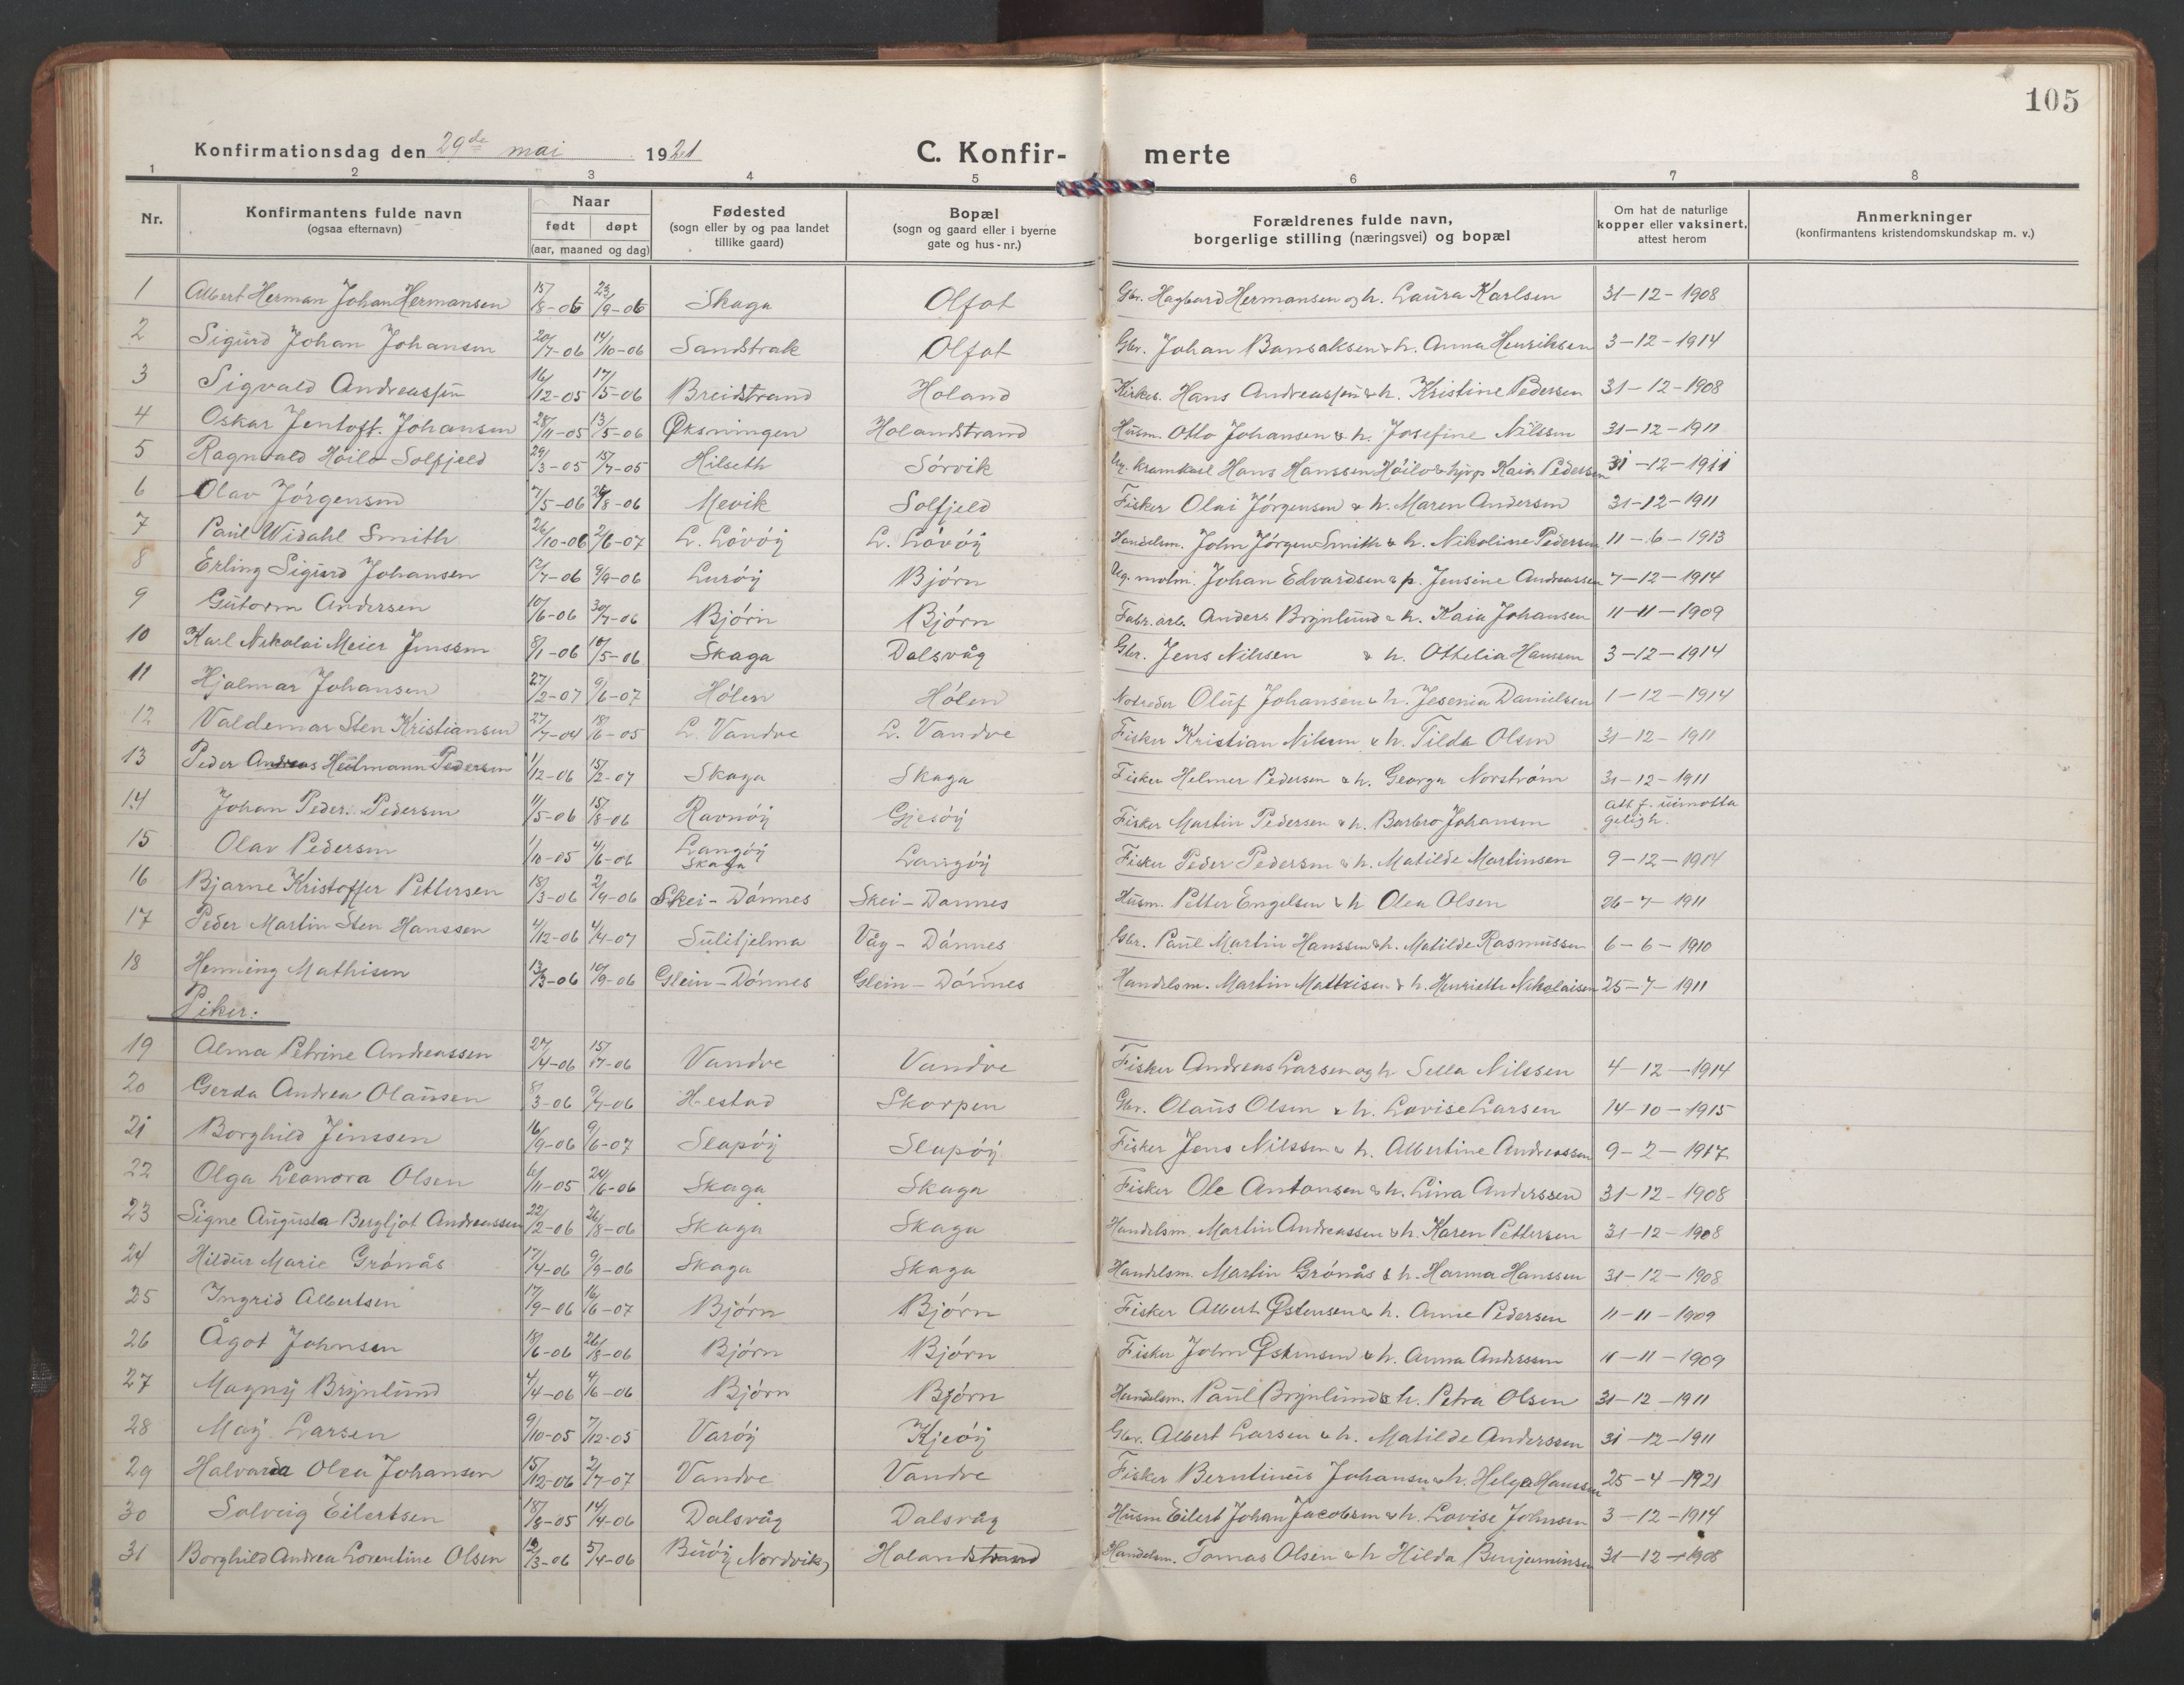 105
Konfirmationsdag den 29de mai 1921 C. Konfir- merte
1 2 3 4 5 6 7 8
Nr. Konfirmantens fulde navn (ogsaa efternavn) Naar født døpt (aar, maaned og dag) Fødested (sogn eller by og paa landet tillike gaard) Bopæl (sogn og gaard eller i byerne gate og hus-nr.) Forældrenes fulde navn, borgerlige stilling (næringsvei) og bopæl Om hat de naturlige kopper eller vaksinert, attest herom Anmerkninger (konfirmantens kristendomskundskap m. v.)
1 Albert Herman Johan Hermansen 15/8-06 23/9-06 Skaga Olfot Gbr. Hagbard Hermansen og h. Laura Karlsen 31-12-1908
2 Sigurd Johan Johansen 20/7-06 14/10-06 Sandstrak Olfot Gbr. Johan Bansaksen & h. Anna Henriksen 3-12-1914
3 Sigvald Andreassen 16/12-05 17/5-06 Breidstrand Holand Kirkes. Hans Andreassen & h. Kristine Pedersen 31-12-1908
4 Oskar Jentoft. Johansen 28/11-05 13/5-06 Øksningen Holandstrand Husm. Otto Johansen & h. Josefine Nilssen 31-12-1911
5 Ragnvald Høilo Solfjeld 29/3-05 15/7-05 Hilseth Sørvik Ug. kramkarl Hans Hanssen Høilo & hjvp Kaia Pedersen 31-12-1911
6 Olav Jørgensen 7/5-06 26/8-06 Mevik Solfjeld Fisker Olai Jørgensen & h. Maren Andersen 31-12-1911
7 Paul Widahl Smith 26/10-06 2/6-07 L. Løvøy L. Løvøy Handelsm. John Jørgen Smith & h. Nikoline Pedersen 11-6-1913
8 Erling Sigurd Johansen 12/7-06 9/9-06 Lurøy Bjørn Ug. molm. Johan Edvardsen & p. Jensine Andreassen 7-12-1914
9 Gutorm Andersen 10/6-06 30/7-06 Bjørn Bjørn Fabr. arb. Anders Brynlund & h. Kaia Johansen 11-11-1909
10 Karl Nikolai Meier Jenssen 8/1-06 10/5-06 Skaga Dalsvåg Gbr. Jens Nilssen & h. Othelia Hanssen 3-12-1914
11 Hjalmar Johansen 27/2-07 9/6-07 Hølen Hølen Notreder Oluf Johansen & h. Jesenia Danielsen 1-12-1914
12 Valdemar Sten Kristiansen 27/7-04 18/6-05 L. Vandve L. Vandve Fisker Kristian Nilsen & h. Tilda Olsen 31-12-1911
13 Peder Andreas Heilmann Pedersen 1/12-06 15/2-07 Skaga Skaga Fisker Helmer Pedersen & h. Georga Norstrøm 31-12-1911
14 Johan Peder. Pedersen 11/5-06 15/8-06 Ravnøy Gjesøy Fisker Martin Pedersen & h. Barbro Johansen att f. uimotta geligh.
15 Olav Pedersen 1/10-05 4/6-06 Langøy Skaga Langøy Fisker Peder Pedersen & h. Matilde Martinsen 9-12-1914
16 Bjarne Kristoffer Pettersen 18/3-06 2/9-06 Skei-Dønnes Skei-Dønnes Husm. Petter Engelsen & h Olea Olsen 26-7-1911
17 Peder Martin Sten Hanssen 4/12-06 4/4-07 Sulitjelma Våg-Dønnes Gbr. Paul Martin Hanssen & h. Matilde Rasmussen 6-6-1910
18 Henning Mathisen 13/3-06 10/9-06 Glein-Dønnes Glein-Dønnes Handelsm. Martin Mathisen & h. Henriette Nikolaisen 25-7-1911
Piker:
19 Alma Petrine Andreassen 27/4-06 15/7-06 Vandve Vandve Fisker Andreas Larsen og h Sella Nilssen 4-12-1914
20 Gerda Andrea Olaussen 8/3-06 9/7-06 Hestad Skorpen Gbr. Olaus Olsen & h. Lovise Larsen 14-10-1915
21 Borghild Jenssen 16/9-06 9/6-07 Slapøy Slapøy Fisker Jens Nilssen & h. Albertine Andreassen 9-2-1917
22 Olga Leonora Olsen 6/11-05 24/6-06 Skaga Skaga Fisker Ole Antonsen & h. Lina Anderssen 31-12-1908
23 Signe Augusta Bergljot Andreassen 22/2-06 26/8-06 Skaga Skaga Handelsm. Martin Andreassen & h. Karen Pettersen 31-12-1908
24 Hildur Marie Grønås 17/4-06 9/9-06 Skaga Skaga Handelsm. Martin Grønås & h. Hanna Hanssen 31-12-1908
25 Ingrid Albertsen 17/9-06 16/6-07 Bjørn Bjørn Fisker Albert Østensen & h. Anne Pedersen 11-11-1909
26 Ågot Johnsen 18/6-06 26/8-06 Bjørn Bjørn Fisker John Østensen & h. Anna Anderssen 11-11-1909
27 Magny Brynlund 4/4-06 4/6-06 Bjørn Bjørn Handelsm. Paul Brynlund & h. Petra Olsen 31-12-1911
28 May. Larsen 9/10-05 7/12-05 Varøy Kjeøy Gbr. Albert Larsen & h. Matilde Anderssen 31-12-1911
29 Halvarda Olea Johansen 15/12-06 2/7-07 Vandve Vandve Fisker Berntinus Johansen & h. Helga Hanssen 25-4-1921
30 Solveig Eilertsen 18/8-05 14/4-06 Dalsvåg Dalsvåg Husm Eilert Johan Jacobsen & h. Lovise Johnsen 3-12-1914
31 Borghild Andrea Lorentine Olsen 12/3-06 5/4-06 Burøy Nordvik, Holandstrand Handelsm. Tomas Olsen & h Hilda Benjaminsen 31-12-1908